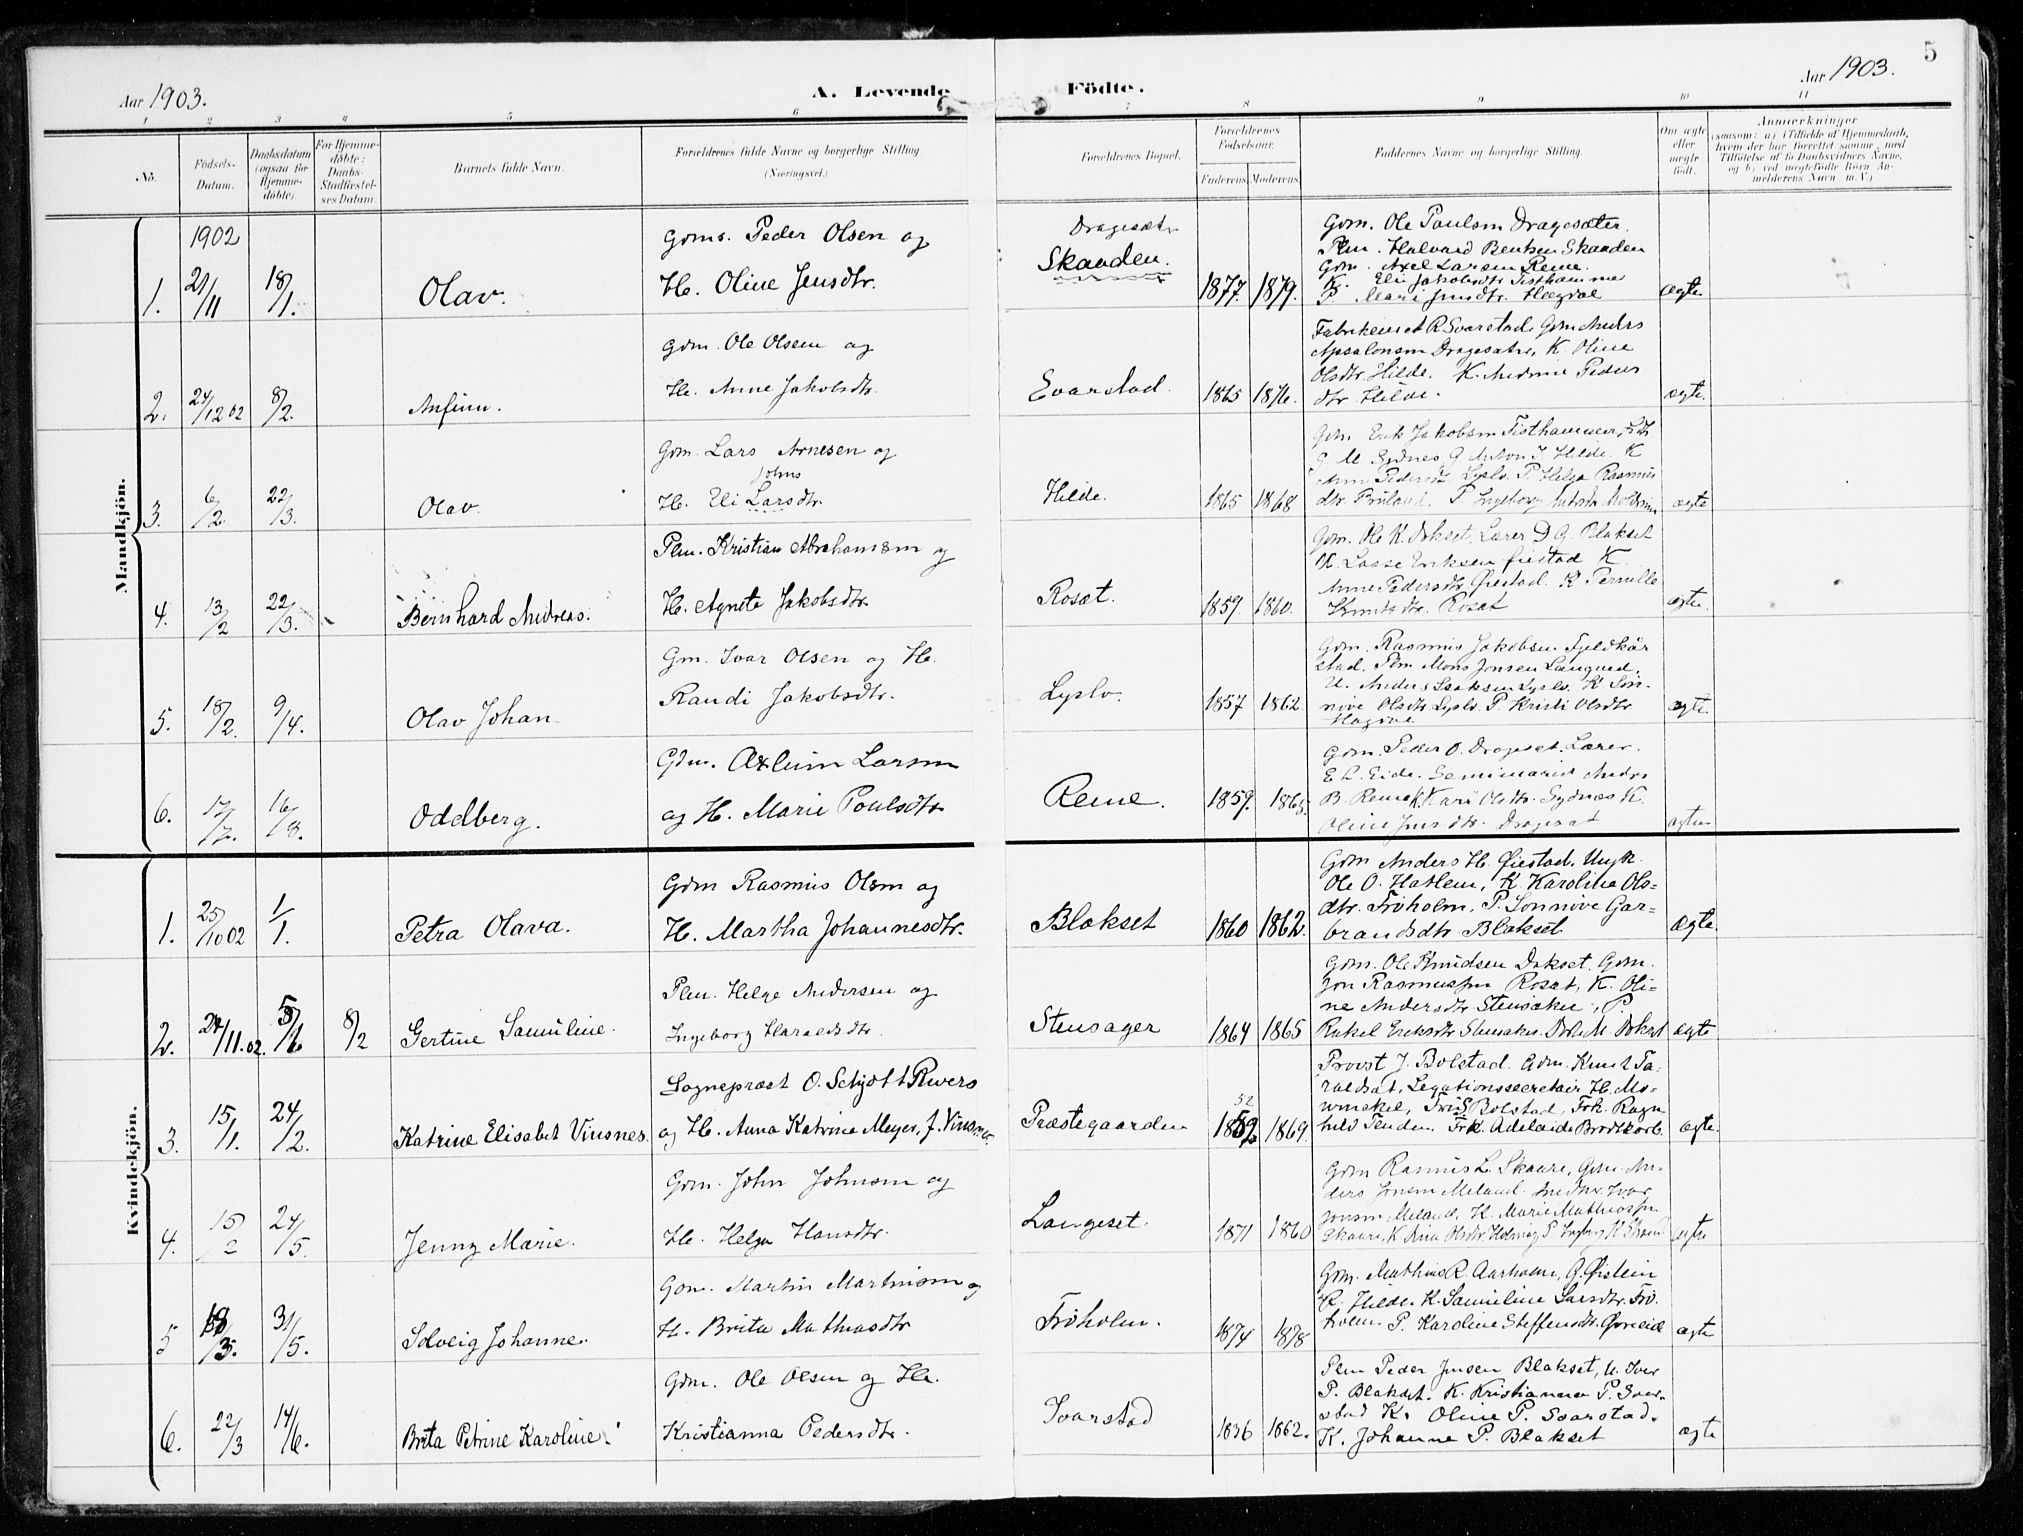 5
Aar 1903.
A. Levende
Födte.
Aar 1903.
1 2 3 4 5 6 7 8 9 10 11
No.
Födsels-Datum.
Daabsdatum (ogsaa for Hjemmedöbte).
For Hjemmedöbte: Daabs-Stadfæstelses Datum.
Barnets fulde Navn.
Forældrenes fulde Navne og borgerlige Stilling (Næringsvei.)
Forældrenes Bopæl.
Forældrenes Fødselsaar.
Faderens. Moderens.
Faddernes Navne og borgerlige Stilling.
Om ægte eller uægte født.
Anmærkninger
Mandkjön.
1902
1. 21/11 18/1. Olav.
Gdms. Peder Olsen og
H. Oline Jensdtr.
Dragesætr
Skaaden.
1877. 1879.
Gdm. Ole Paulsen Dragesæter.
Plm. Halvard Bentsen Skaaden
Gdm. Axel Larsen Reme.
K. Eli Jakobsdtr Tisthammer
P. Mari Jensdtr. Hegdal
ægte
2. 24/12 02 8/2. Anfinn.
Gdm. Ole Olsen og
H. Anne Jakobsdtr.
Svarstad.
1865 1876.
Fabrikeier A R Svarstad. Gdm Anders
Apsalonsen Dragesætre, K. Oline
Olsdtr. Hilde. K. Andrine Peders
dtr Hilde.
ægte.
3. 6/2 22/3. Olav.
Gdm. Lars Arnesen og
Johns
H. Eli Larsdtr.
Hilde.
1865 1868
Gdm. Erik Jakobsen Tisthammer,
ægte
4. 13/2 22/3. Bernhard Andreas.
Plm. Kristian Abrahamsen og
H. Agnete Jakobsdtr.
Rosæt.
1859. 1860.
Gdm. Ole K. Dokset. Lærer D G. Blakset
K. Lasse Eriksen Øiestad K
Anne Pedersdtr Øiestad. K Pernille
Knutsdtr. Rosæt
ægte.
5. 18/2. 9/4. Olav Johan
Gm. Ivar Olsen og H.
Randi Jakobsdtr.
Lyslo.
1857 1862.
Gdm. Rasmus Jakobsen Fjeldkår
stad. Plm Mons Jonsen Langned.
U. Anders Isaksen Lyslo. K. Søn-
növe Olsdtr Lyslo. P. Kristi Olsdtr
ægte.
6. 17/7. 16/8. Oddberg.
Gdm. Axlum Larsen
og H. Marie Poulsdtr
Reme.
1859. 1865.
Gdm. Peder O. Dragesæt. Lærer.
E L. Eide. Seminarist Andr.
B. Reme K. Kari Olsdtr. Sydnes K.
Oline Jensdtr. Dragesæt
ægte
Kvindekjön.
1. 25/10 02 1/1. Petra Olava.
Gdm Rasmus Olsen og
H. Martha Johannesdtr.
Blakset
1860 1862.
Gdm Anders H. Øiestad. Ungk.
Ole O. Hatlem, K. Karoline Ols-
dtr. Fröholm, P. Sønnöve Gar-
brandsdtr Blakset.
ægte.
2. 24/11.02. 8/2 Gertine Samuline.
Plm. Helge Andersen og
Ingeborg Haraldsdtr.
Stensager
1864 1865
Gdm. Ole Knudsen Dokset. Gdm.
Jon Rasmussen Rosæt, K. Oli-
ne Andersdtr Stensaker, P.
Rakel Eriksdtr Stensaker.
ægte
3. 15/1. 24/2. Katrine Elisabet Vinsnes.
Sognepræst O. Schjött Rivers
og H. Anna Katrine Meyer, f. Vinsnes.
Præstegaarden
52
1852 1869.
Provst J. Bolstad. Gdm. Knut Ta-
raldsæt, Legationssecretair H. Mo-
winckel, Fru S Bolstad, Frk. Ragn-
hild Tenden, Frk. Adelaide Brodtkorb.
ægte.
4. 15/2 24/5. Jenny Marie.
Gdm. John Johnsen og
H. Helga Hansdtr.
Langeset.
1871 1860
Gdm Rasmus L. Skaare, Gdm. An-
ders Jonsen Meland.
Jonsen Meland, K. Marie Mathiasen
ægte
5 18/3. 31/5. Solveig Johanne.
Gdm. Martin Martinsen og
H. Brita Mathiasdtr
Fröholm.
1874 1878
Gdm. Mathias R. Aarholm, G. Øistein
R. Hilde. K. Samuline Larsdtr. Frö-
holm. P. Karoline Steffensdtr. Øvreeide
ægte
6. 22/3 14/6. Brita Petrine Karoline.
Gdm. Ole Olsen og H.
Kristianna Pedersdtr.
Svarstad
1836 1862.
Plm Peder Jensen Blakset, U. Iver
P. Blakset. K. Kristianna P. Svar-
stad K. Oline P. Svarstad.
K. Johanne P. Blakset
ægte